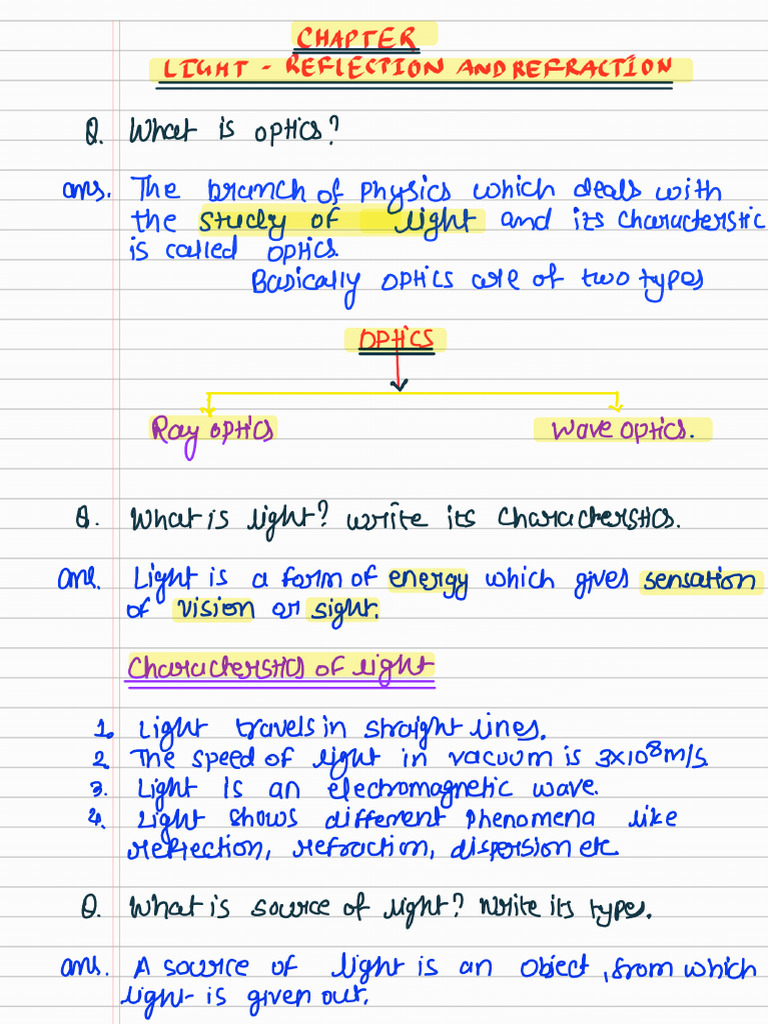 CHAPTER
LIGHT - REFLECTION AND REFRACTION
Q. What is optics?
ans. The branch of physics which deals with
the study of light and its characteristic
is called optics.
Basically optics are of two types
OPTICS
Ray optics
Wave optics.
Q. What is light? Write its characteristics.
ans. Light is a form of energy which gives sensation
of vision or sight.
Characteristics of light
1. Light travels in straight lines.
2. The speed of light in vacuum is 3x10⁸m/s
3. Light is an electromagnetic wave.
4. Light shows different phenomena like
reflection, refraction, dispersion etc
Q. What is source of light? Write its types.
ans. A source of light is an object, from which
light is given out.